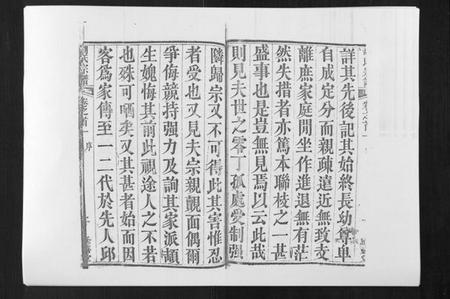 詳其先後記其始終長幼尊卑
自成定分而親疎遠近無致支
離庶家庭閒坐作進退無有茫
然失措者亦篤本聯枝之一甚
盛事也是豈無見焉以云此哉
則見夫世之零丁孤處受制強
隣歸宗又不可得此其害惟忍
者受也又見夫宗親覿面偶爾
爭侮競持強力及詢其家派頓
生媿悔其前此視途人之不若
也殊可哂矣又其甚者始而因
客爲家傳至一二代於先人邱
氏宗譜
卷之首
序